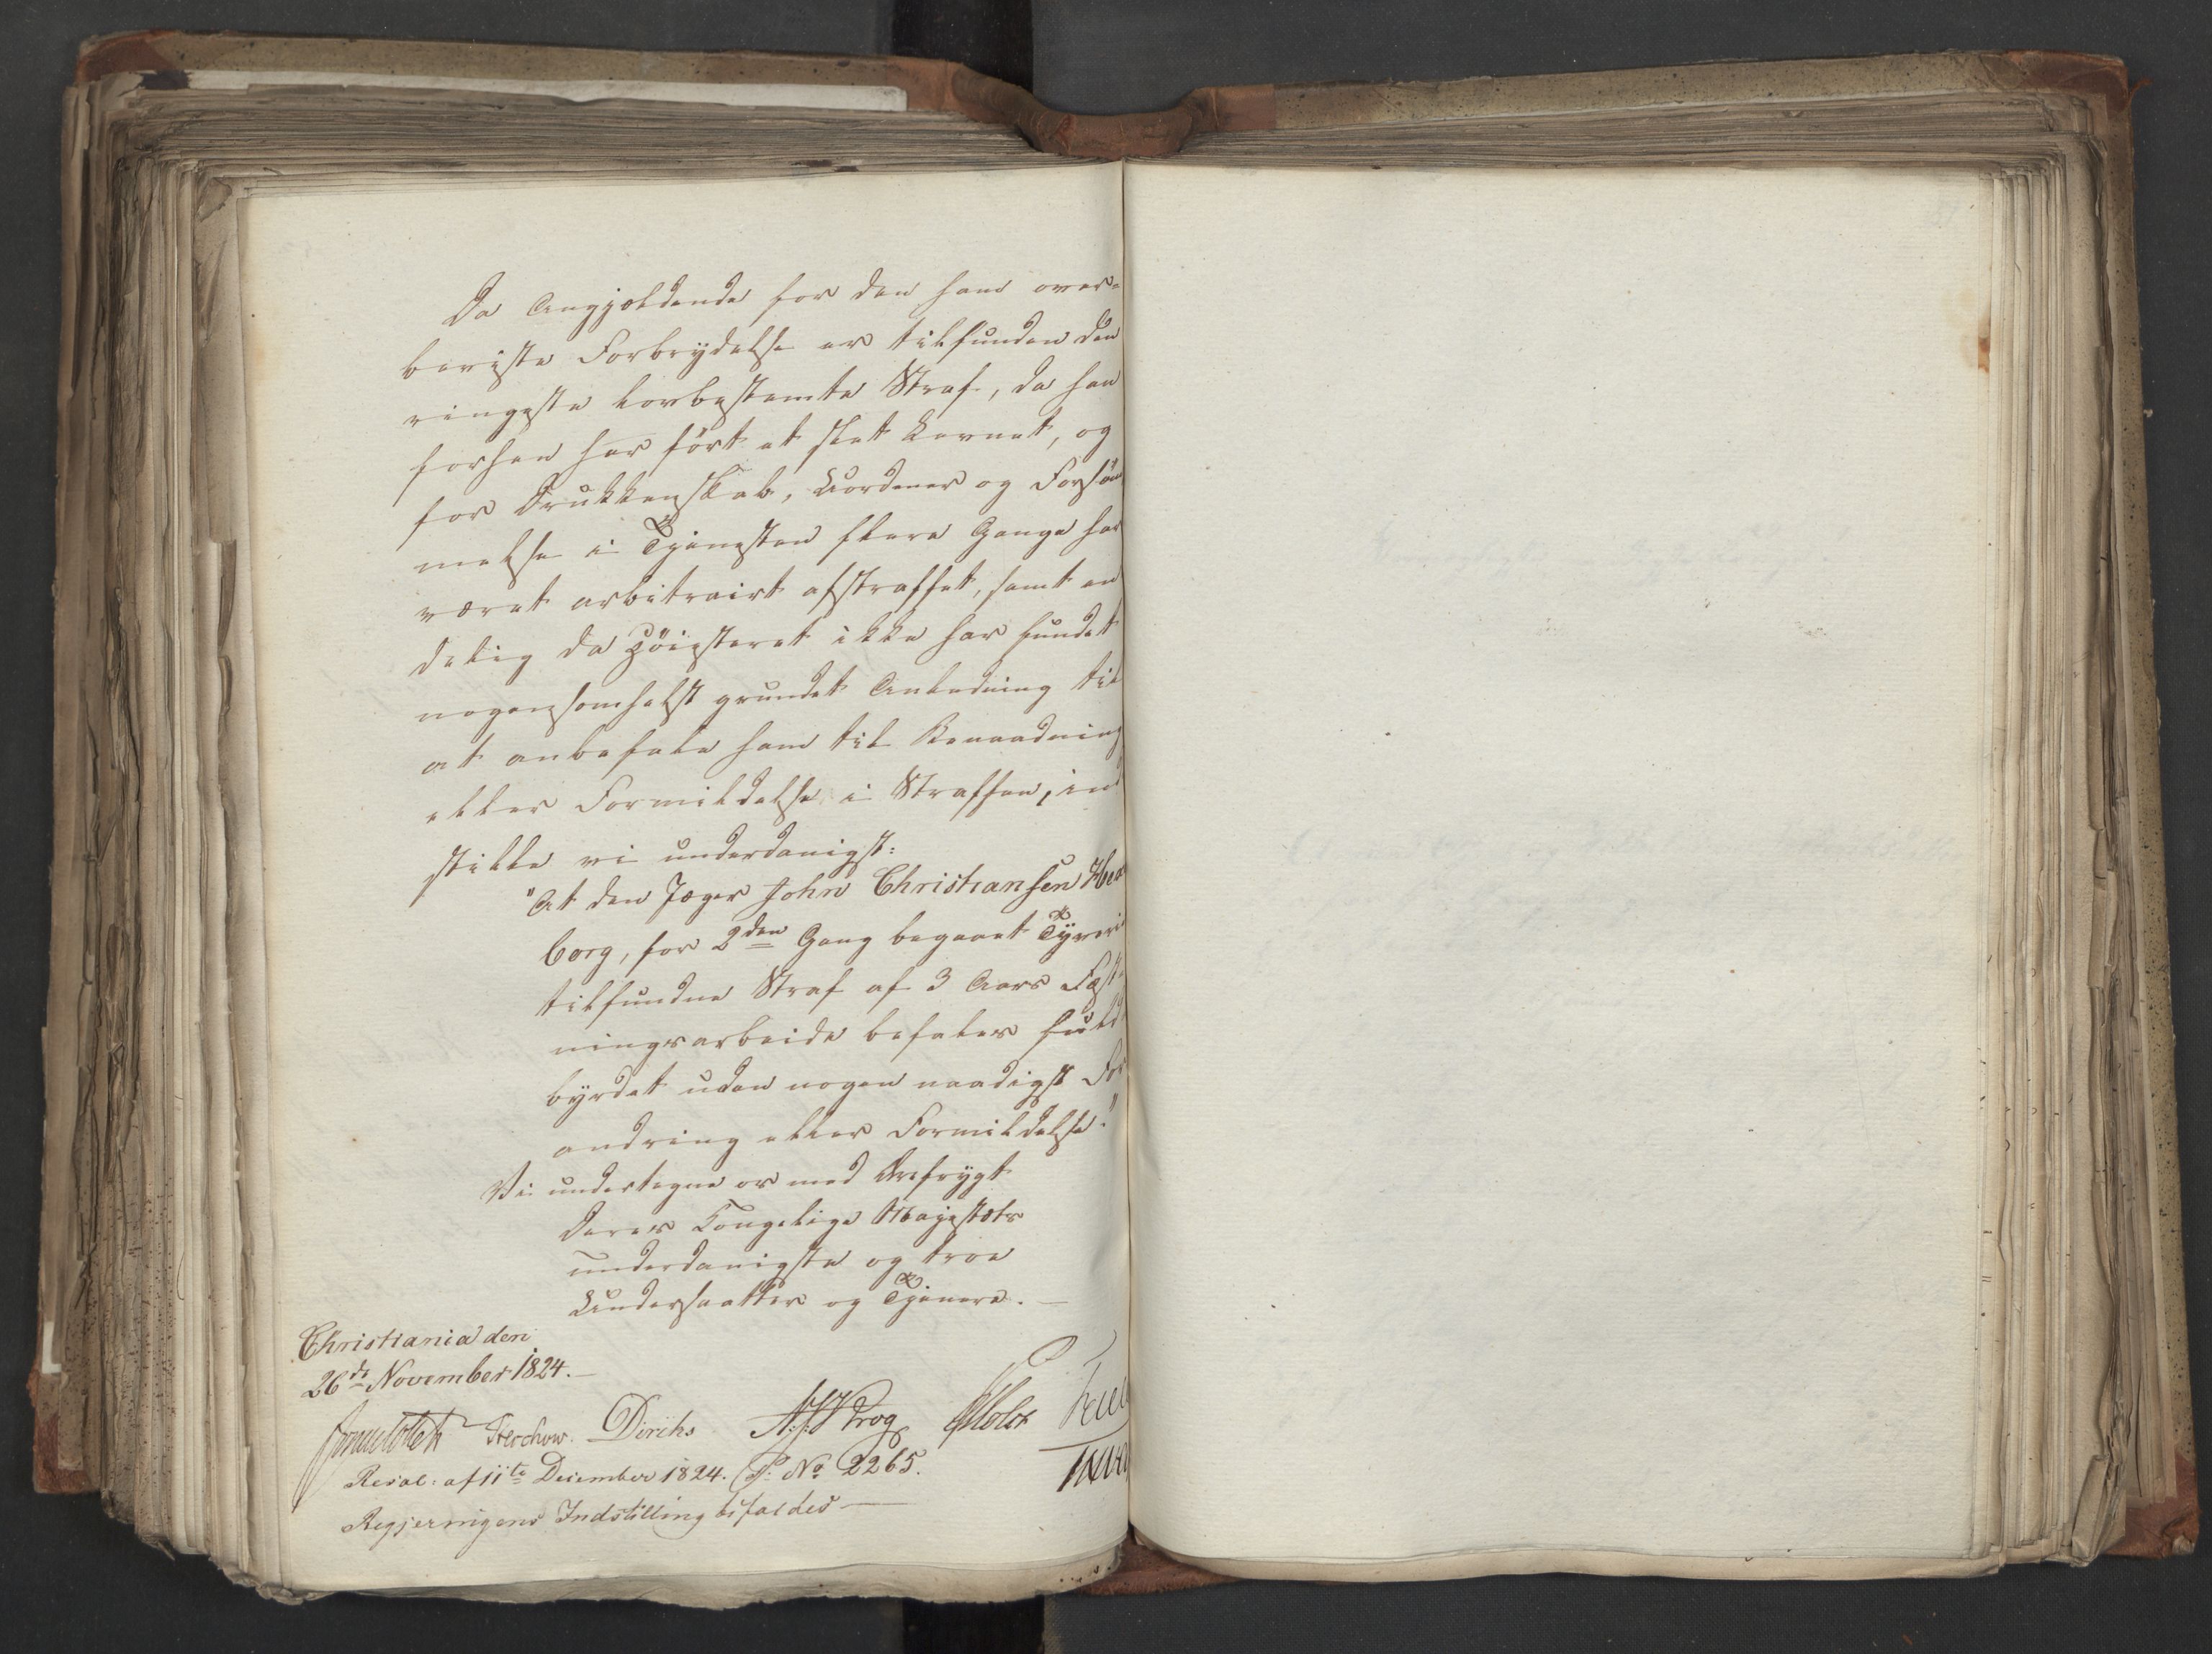 Da Angjeldende for den ham over-
beviste Forbrydelse er tilfunden den
ringeste lovbestemte Straf, da han
forhen har ført et slet Levnet, og
for Drukkenskab, Uordener og Forsøm
melse i Tjenesten flere Gange har
været arbitrairt afstraffet, samt en
delig da Høiesteret ikke har fundet
nogensomhelst grundet Anledning til
at anbefale ham til Benaadning
eller Formildelse i Straffen, ind
stille vi underdanigst:
"At den Jæger John Christiansen
borg, for 2den Gang begaaet Tyveri
tilfundne Straf af 3 Aars Fæst-
ningsarbeide befales fuld
byrdet uden nogen naadigst For
andring eller Formildelse."
Vi undertegne os med Ærefrygt
Deres Kongelige Majestæts
underdanigste og troe
Undersaatter og Tjenere. —
Christiania den
26de November 1824. —
Treschow. Diriks A: J: Krog
Resol: af 11te December 1824. P: No 2265.
Regjeringens Indstilling bifaldes —